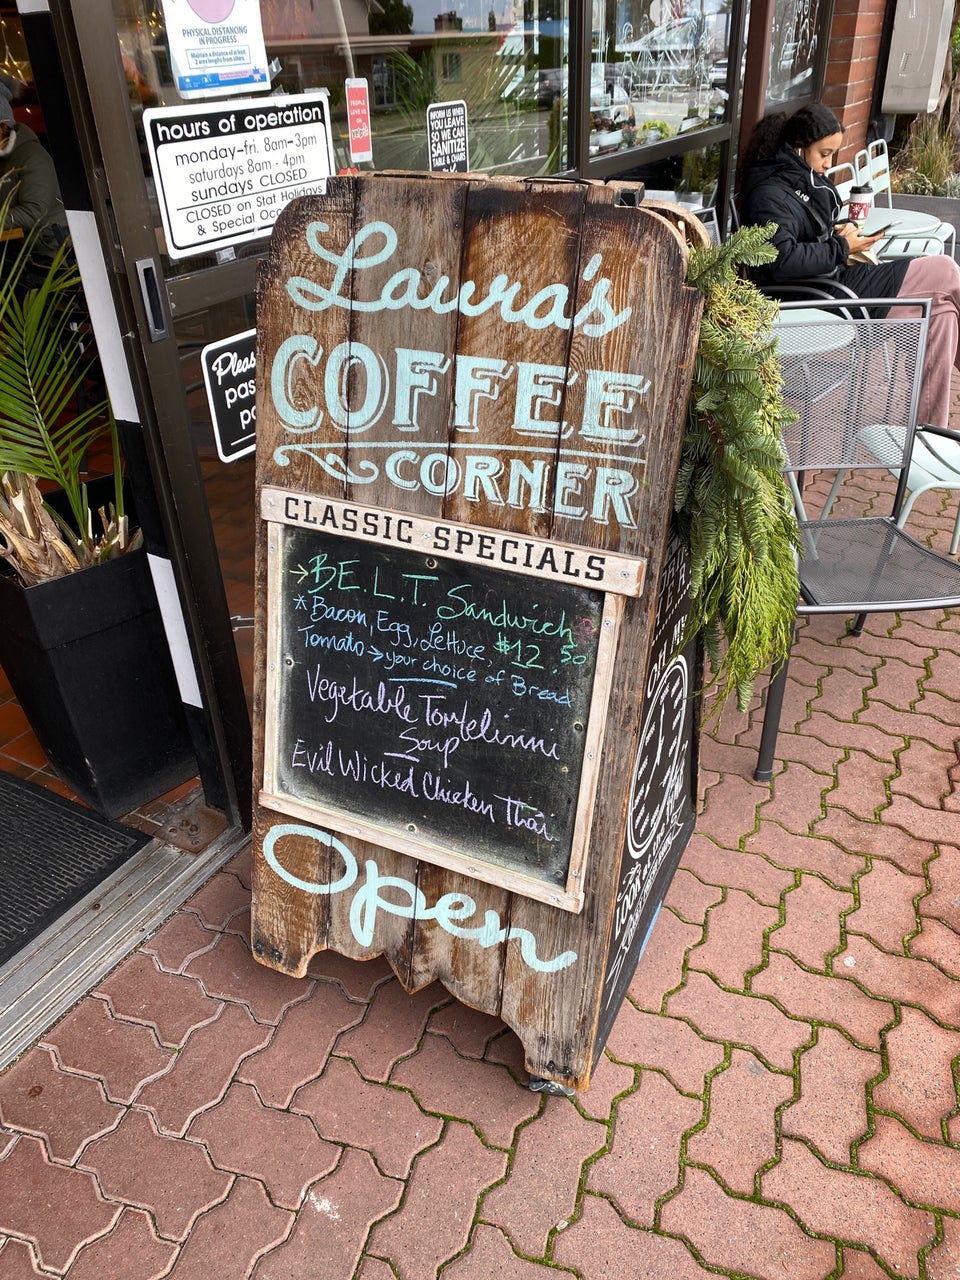 PHYSICAL DISTANCING
IN PROGRESS
Maintain a distance of at least
2 arms lengths from others.
hours of operation
monday-fri. 8am-3pm
saturdays 8am - 4pm
sundays CLOSED
CLOSED on Stat Holidays
& Special Occ
PEOPLE
LOVE US
ON
yelp
INFORM US WHEN
YOU LEAVE
SO WE CAN
SANITIZE
TABLE & CHAIRS
Pleas
pas
po
Laura's
COFFEE
CORNER
CLASSIC SPECIALS
→B.E.L.T. Sandwich
*Bacon, Egg, Lettuce, $12.50
Tomato → your choice of Bread
Vegetable Tortelinni
Soup
Evil Wicked Chicken Thai
Open
OH MY
LOOK